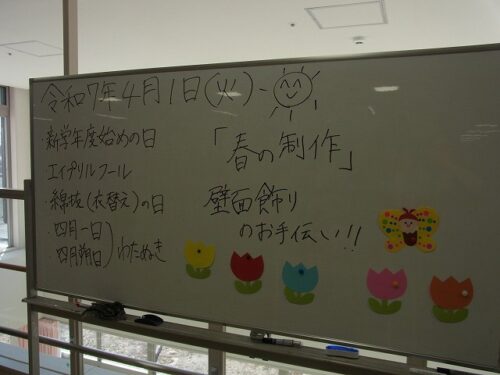 令和7年4月1日(火)-
・新学年度始めの日
・エイプリルフール
・綿抜(衣替え)の日
・四月一日
・四月朔日
わたぬき
「春の制作」
壁面飾り
のお手伝い!!